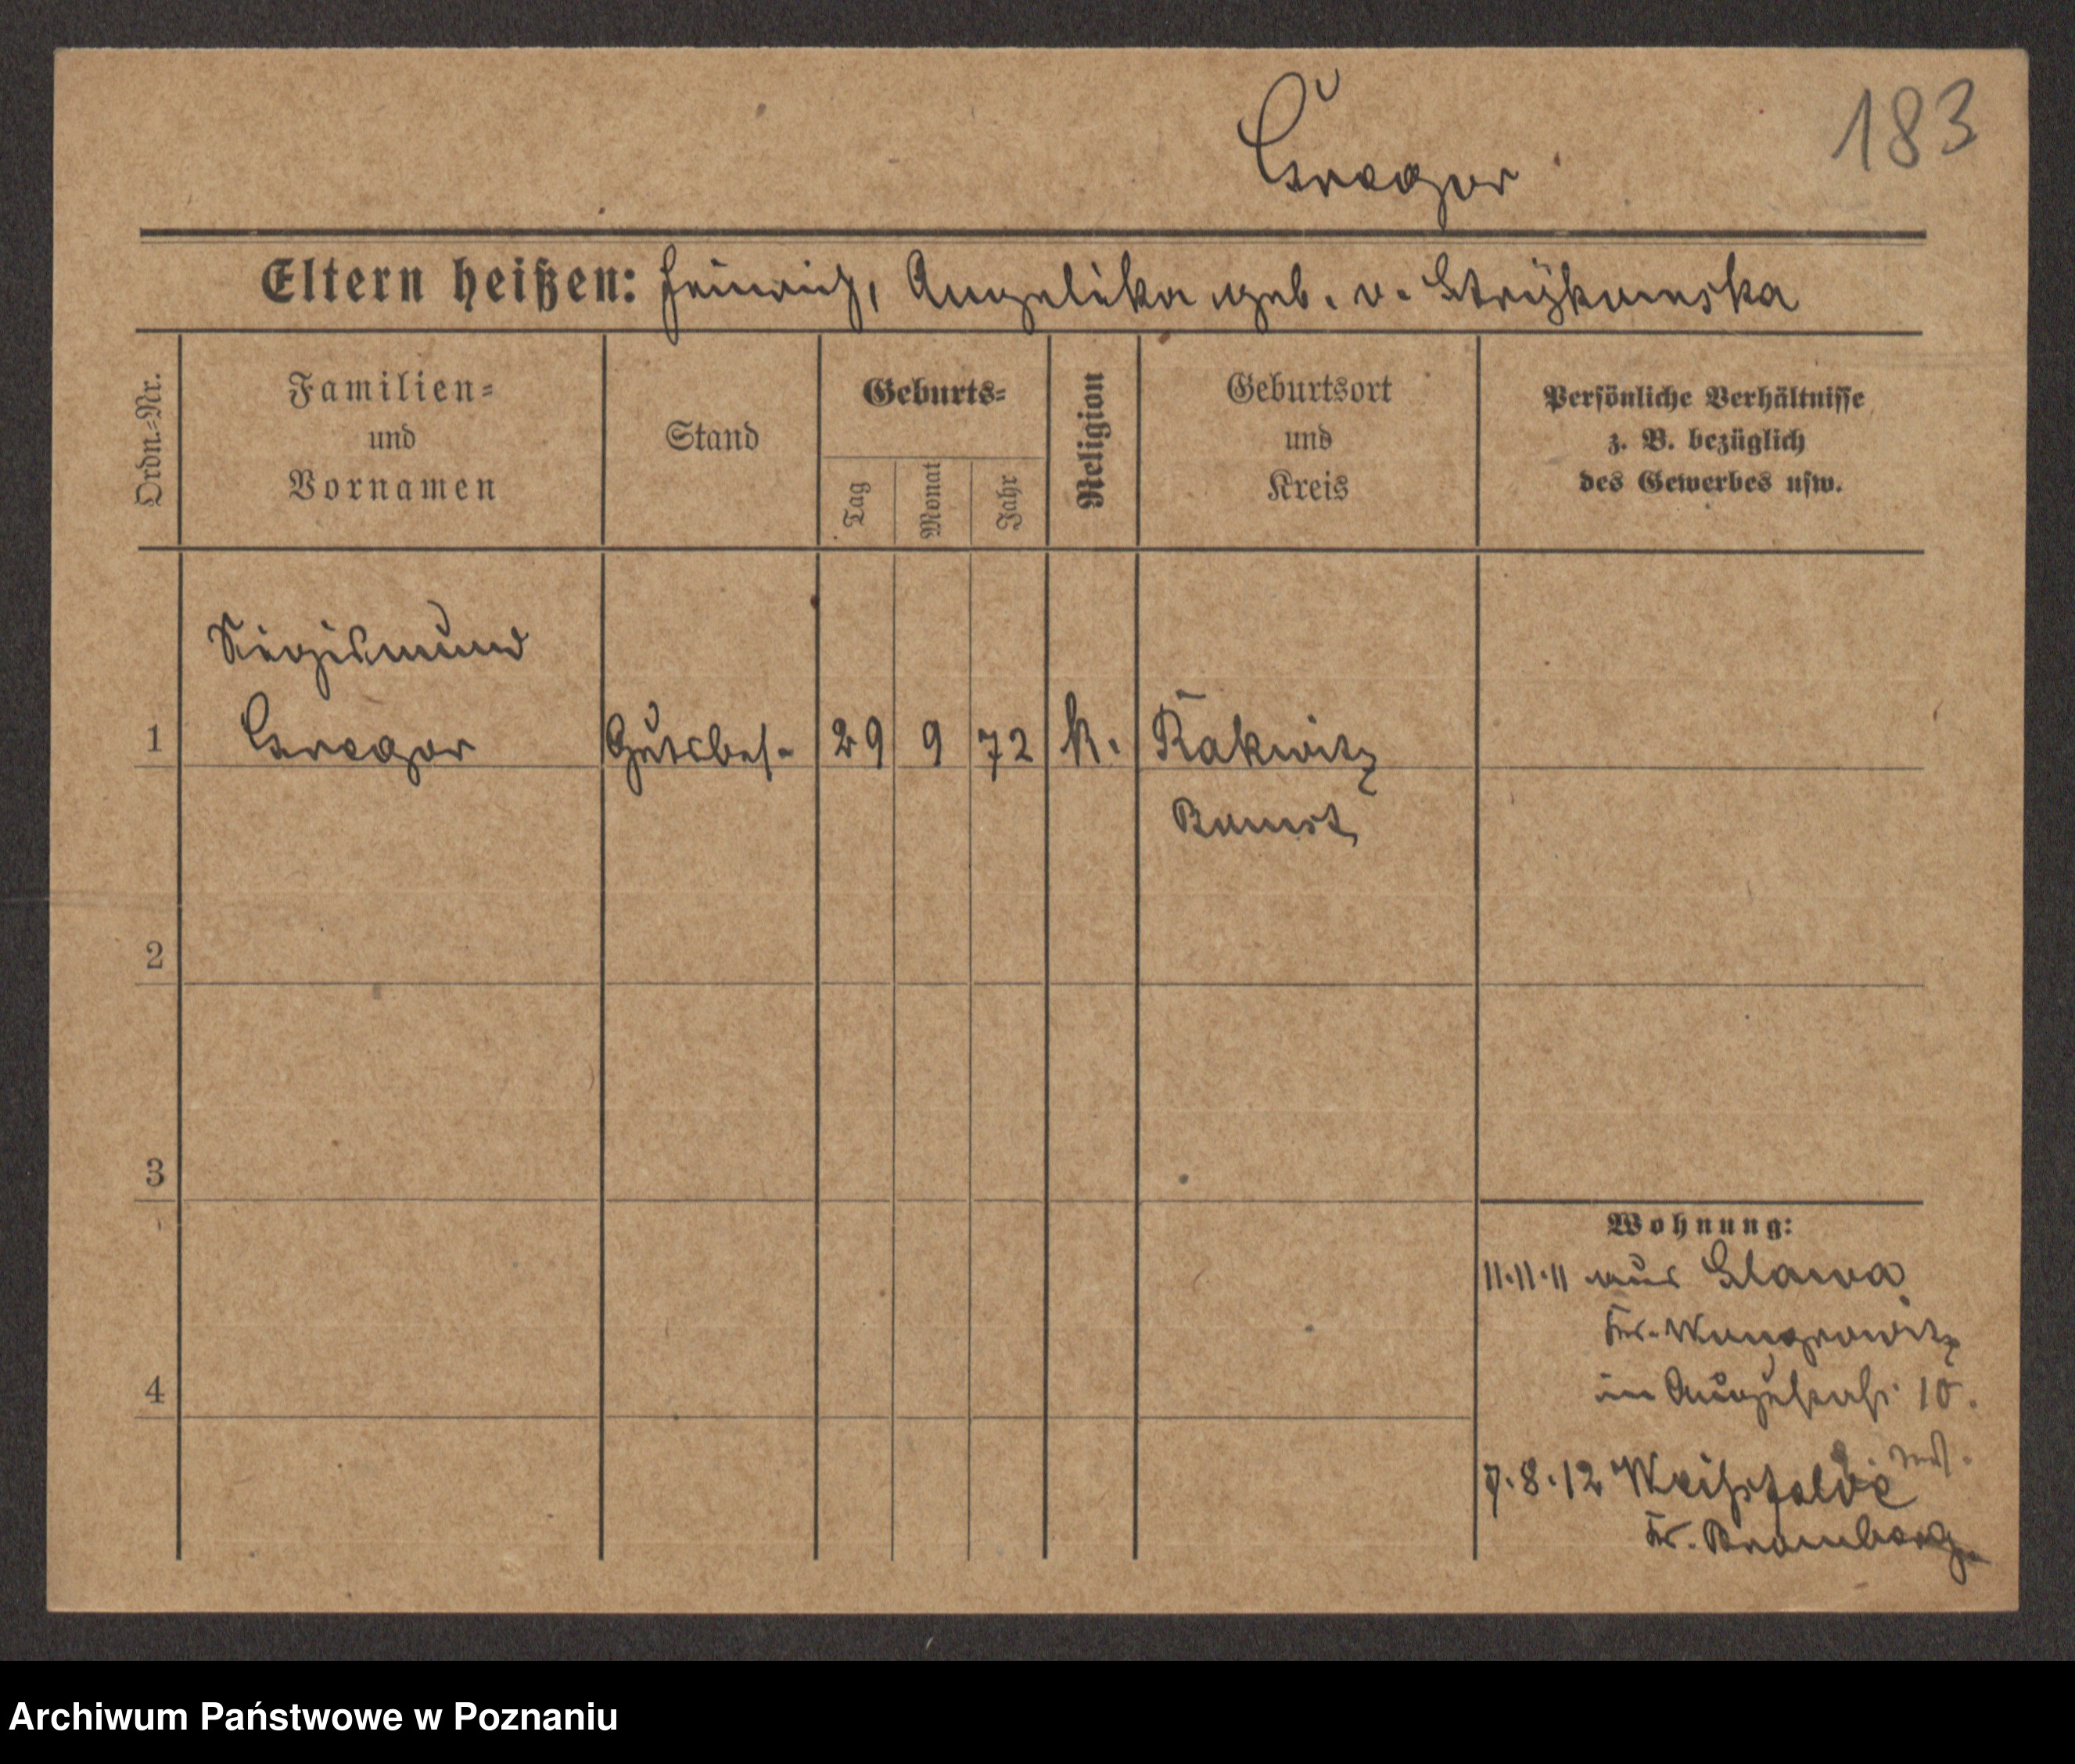 183
Gregor
Eltern heißen: Heinrich, Angelika geb. v. Strykowska
Ordn.-Nr.
Familien-
und
Vornamen
Stand
Geburts-
Tag
Monat
Jahr
Religion
Geburtsort
und
Kreis
Persönliche Verhältnisse
z. B. bezüglich
des Gewerbes usw.
Sigismund
1 Gregor Gutsbes. 29 9 72 k. Rakwitz
Bomst
2
3
4
Wohnung:
11.11.11 aus Slawa
Kr. Wongrowitz
in Augustastr. 10.
7.8.12 Weißfelde
Kr. Bromberg
Archiwum Państwowe w Poznaniu